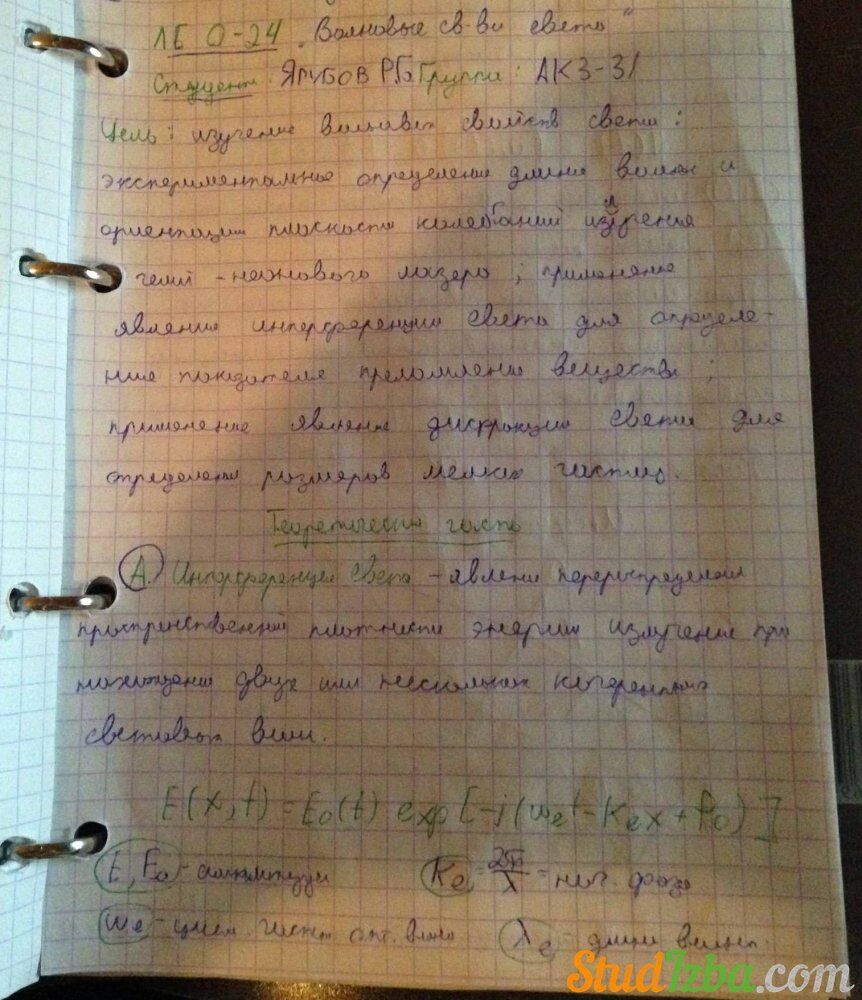 ЛБ О-24 „Волновые св-ва света"
Студент: ЯГУБОВ Р.Б. Группа: АК3-31
Цель: изучение волновых свойств света:
экспериментальное определение длины волны и
ориентации плоскости колебаний излучения
гелий-неонового лазера; применение
явления интерференции света для определе-
ния показателя преломления вещества;
применение явления дифракции света для
определения размеров мелких частиц.
Теоретическая часть
А. Интерференция света - явление перераспределения
пространственной плотности энергии излучения при
двух или нескольких когерентных
световых волн.
E(x,t) = E₀(t) exp[-i(ωₑt - Kₑx + φ₀)]
E, E₀ - амплитуды Kₑ = 2π/λ = нач. фаза
ωₑ - цикл. част. опт. волн λₑ - длина волны
StudIzba.com